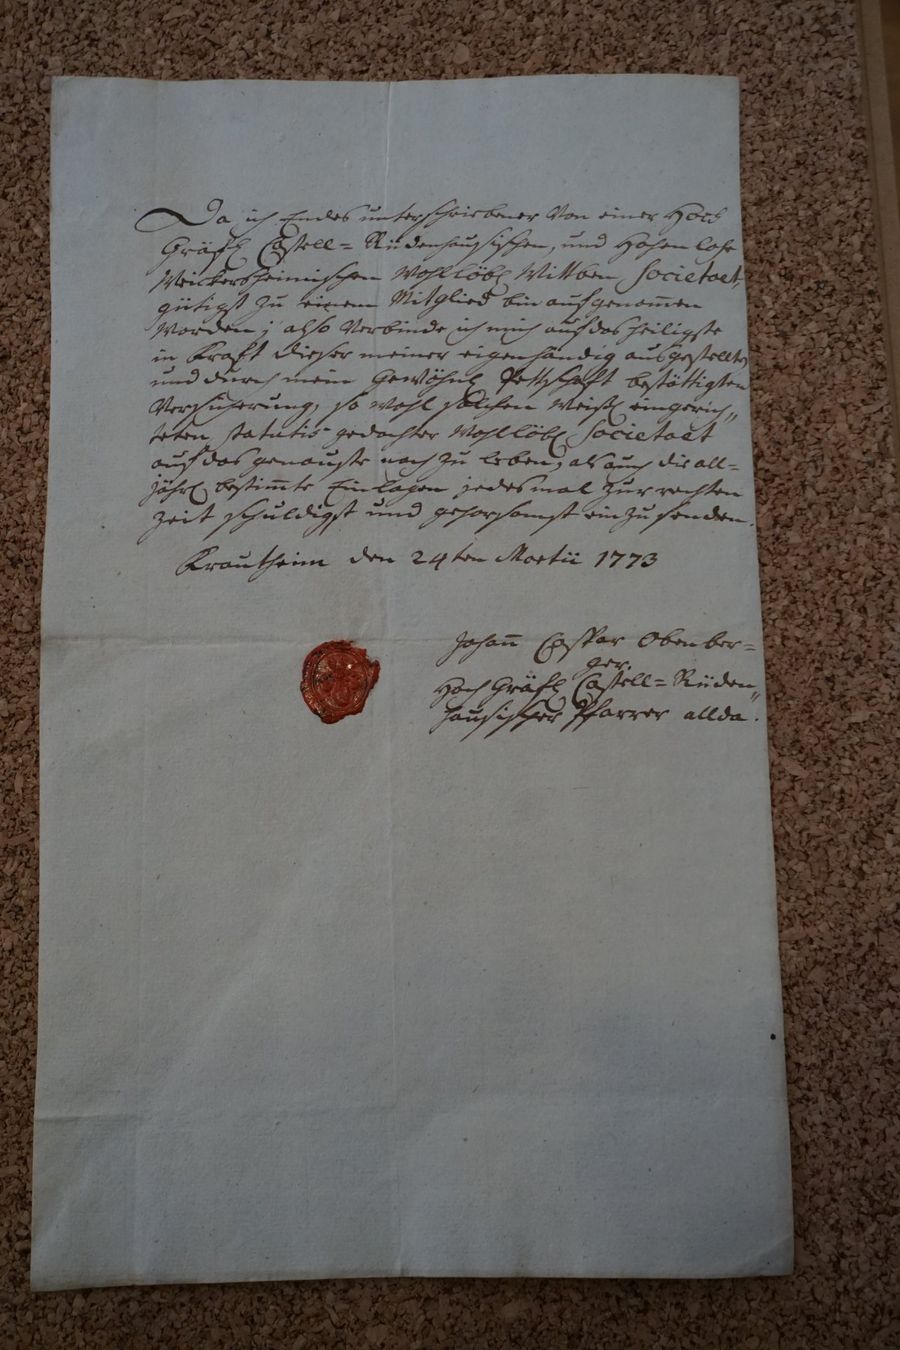 Da ich Endes unterschriebener Von einer Hoch
Gräfl. Castell- Rüdenhausischen, und Hohenlohe
Weickersheimischen Wohllöbl. Wittben Societaet,
gütigst zu einem Mitglied bin aufgenomen
worden; also Verbinde ich mich auf das heiligste
in Krafft dieser meiner eigenhändig ausgestellten,
und durch mein Gewöhnl. Pettschafft bestättigten
Versicherung, so wohl solchen Weisl. eingerich„
teten statutis gedachter Wohllöbl. Societaet
auf das genauste nach zu leben, als auch die all-
jährl. bestimte Einlagen jedesmal zur rechten
Zeit schuldigst und gehorsamst einzusenden.
Krautheim den 24ten Martii 1773
Johann Caspar Obenber-
ger.
Hoch Gräfl. Castell- Rüden„
hausischer Pfarrer allda.